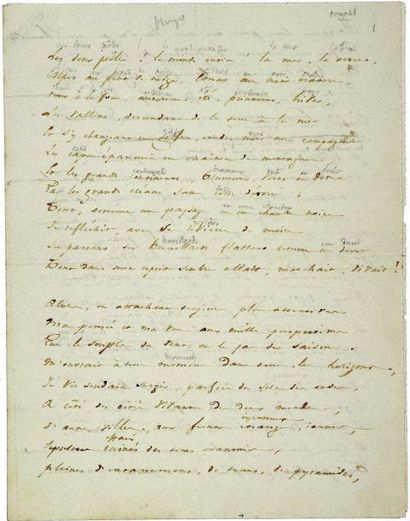 complet
1
Les deux pôles ! le monde entier ! la mer, la terre,
Alpes aux fronts de neige, Etnas au noir cratère,
Tout à la fois, automne, été, printemps, hiver,
Les vallons descendant de la terre à la mer
Et s'y changeant en golfe, et des mers aux campagnes
Les caps épanouis en chaînes de montagnes
Et les grands continents brumeux, verts ou dorés
Par les grands océans sans cesse dévorés,
Tout, comme un paysage en une chambre noire
Se réfléchit, avec ses rivières de moire
Ses passants, ses brouillards flottans comme un duvet
Tout dans mon esprit sombre allait, marchait, vivait !
Alors, en attachant, toujours plus attentives
Ma pensée et ma vue aux mille perspectives
Que le souffle du vent ou le pas des saisons
M'ouvrait à tous momens dans tous les horizons,
Je vis soudain surgir, parfois du sein des ondes,
A côté des cités vivantes des deux mondes,
D'autres villes, aux fronts étranges, inouis,
Sépulcres ruinés des temps évanouis,
Pleines d'entassemens, de tours, de pyramides,